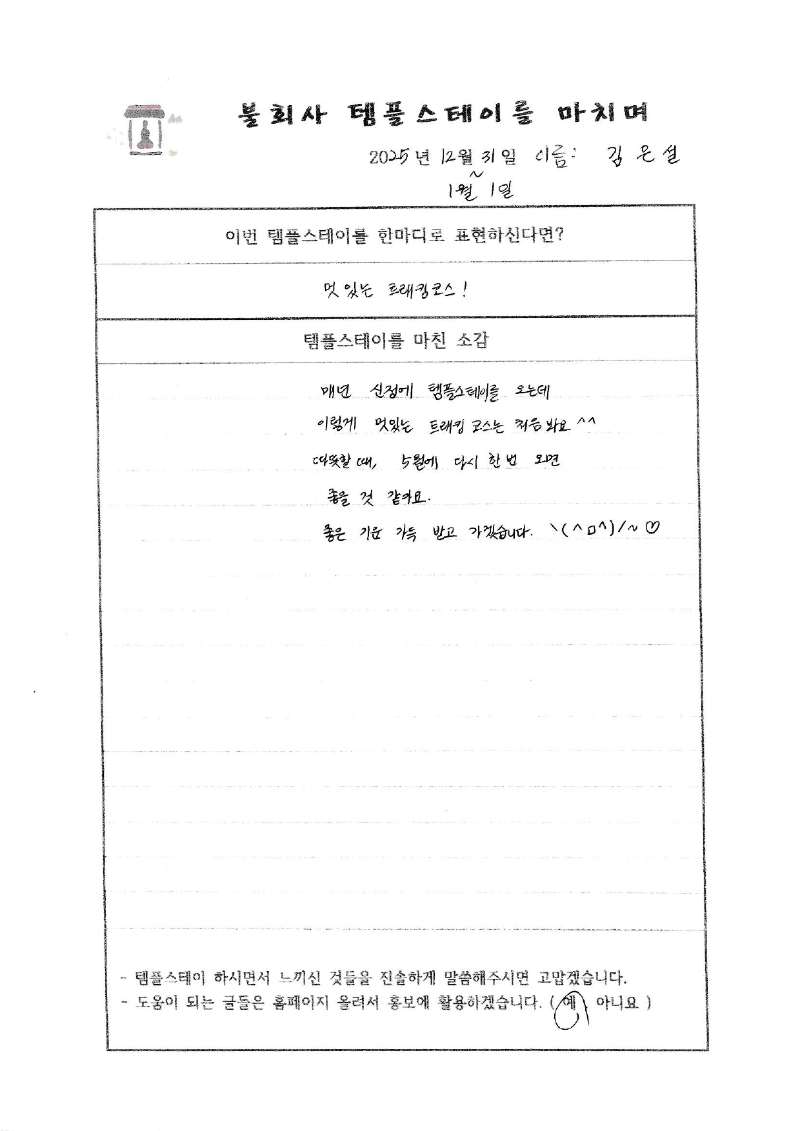 불회사 템플스테이를 마치며
2025년 12월 31일 이름: 김은설
~
1월 1일
이번 템플스테이를 한마디로 표현하신다면?
멋있는 트래킹코스!
템플스테이를 마친 소감
매년 신정에 템플스테이를 오는데
이렇게 멋있는 트래킹 코스는 처음 봐요 ^^
따뜻할 때, 5월에 다시 한 번 오면
좋을 것 같아요.
좋은 기운 가득 받고 가겠습니다. \(^ㅁ^)/~♡
- 템플스테이 하시면서 느끼신 것들을 진솔하게 말씀해주시면 고맙겠습니다.
- 도움이 되는 글들은 홈페이지 올려서 홍보에 활용하겠습니다. ( 예 아니요 )